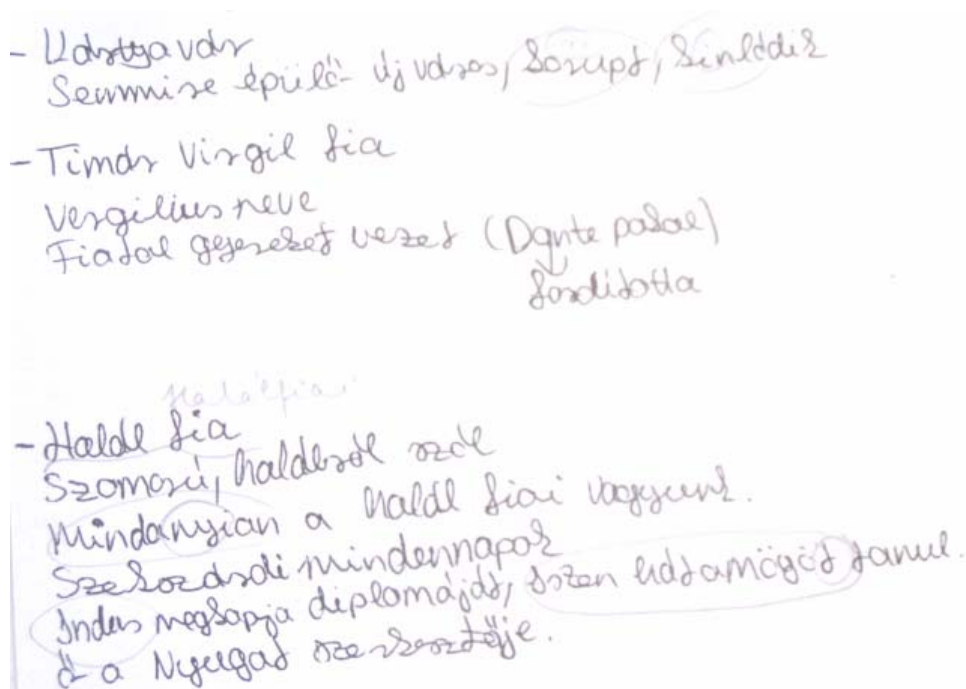 - Kártyavár
Semmire épülő új város, korrupt, sinlődik
- Timár Virgil fia
Vergilius neve
Fiatal gyereket vezet (Dante pokol)
↓
fordította
Halálfiai
- Halál fia
Szomorú, halálról szól
Mindanyian a halál fiai vagyunk.
Szekszárdi mindennapok
Indus megkapja diplomáját, Isten háta mögöt tanul.
ő a Nyugat szerkesztője.